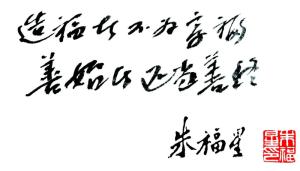 造福者不为享福
善始者还当善终
朱福星
朱福星印